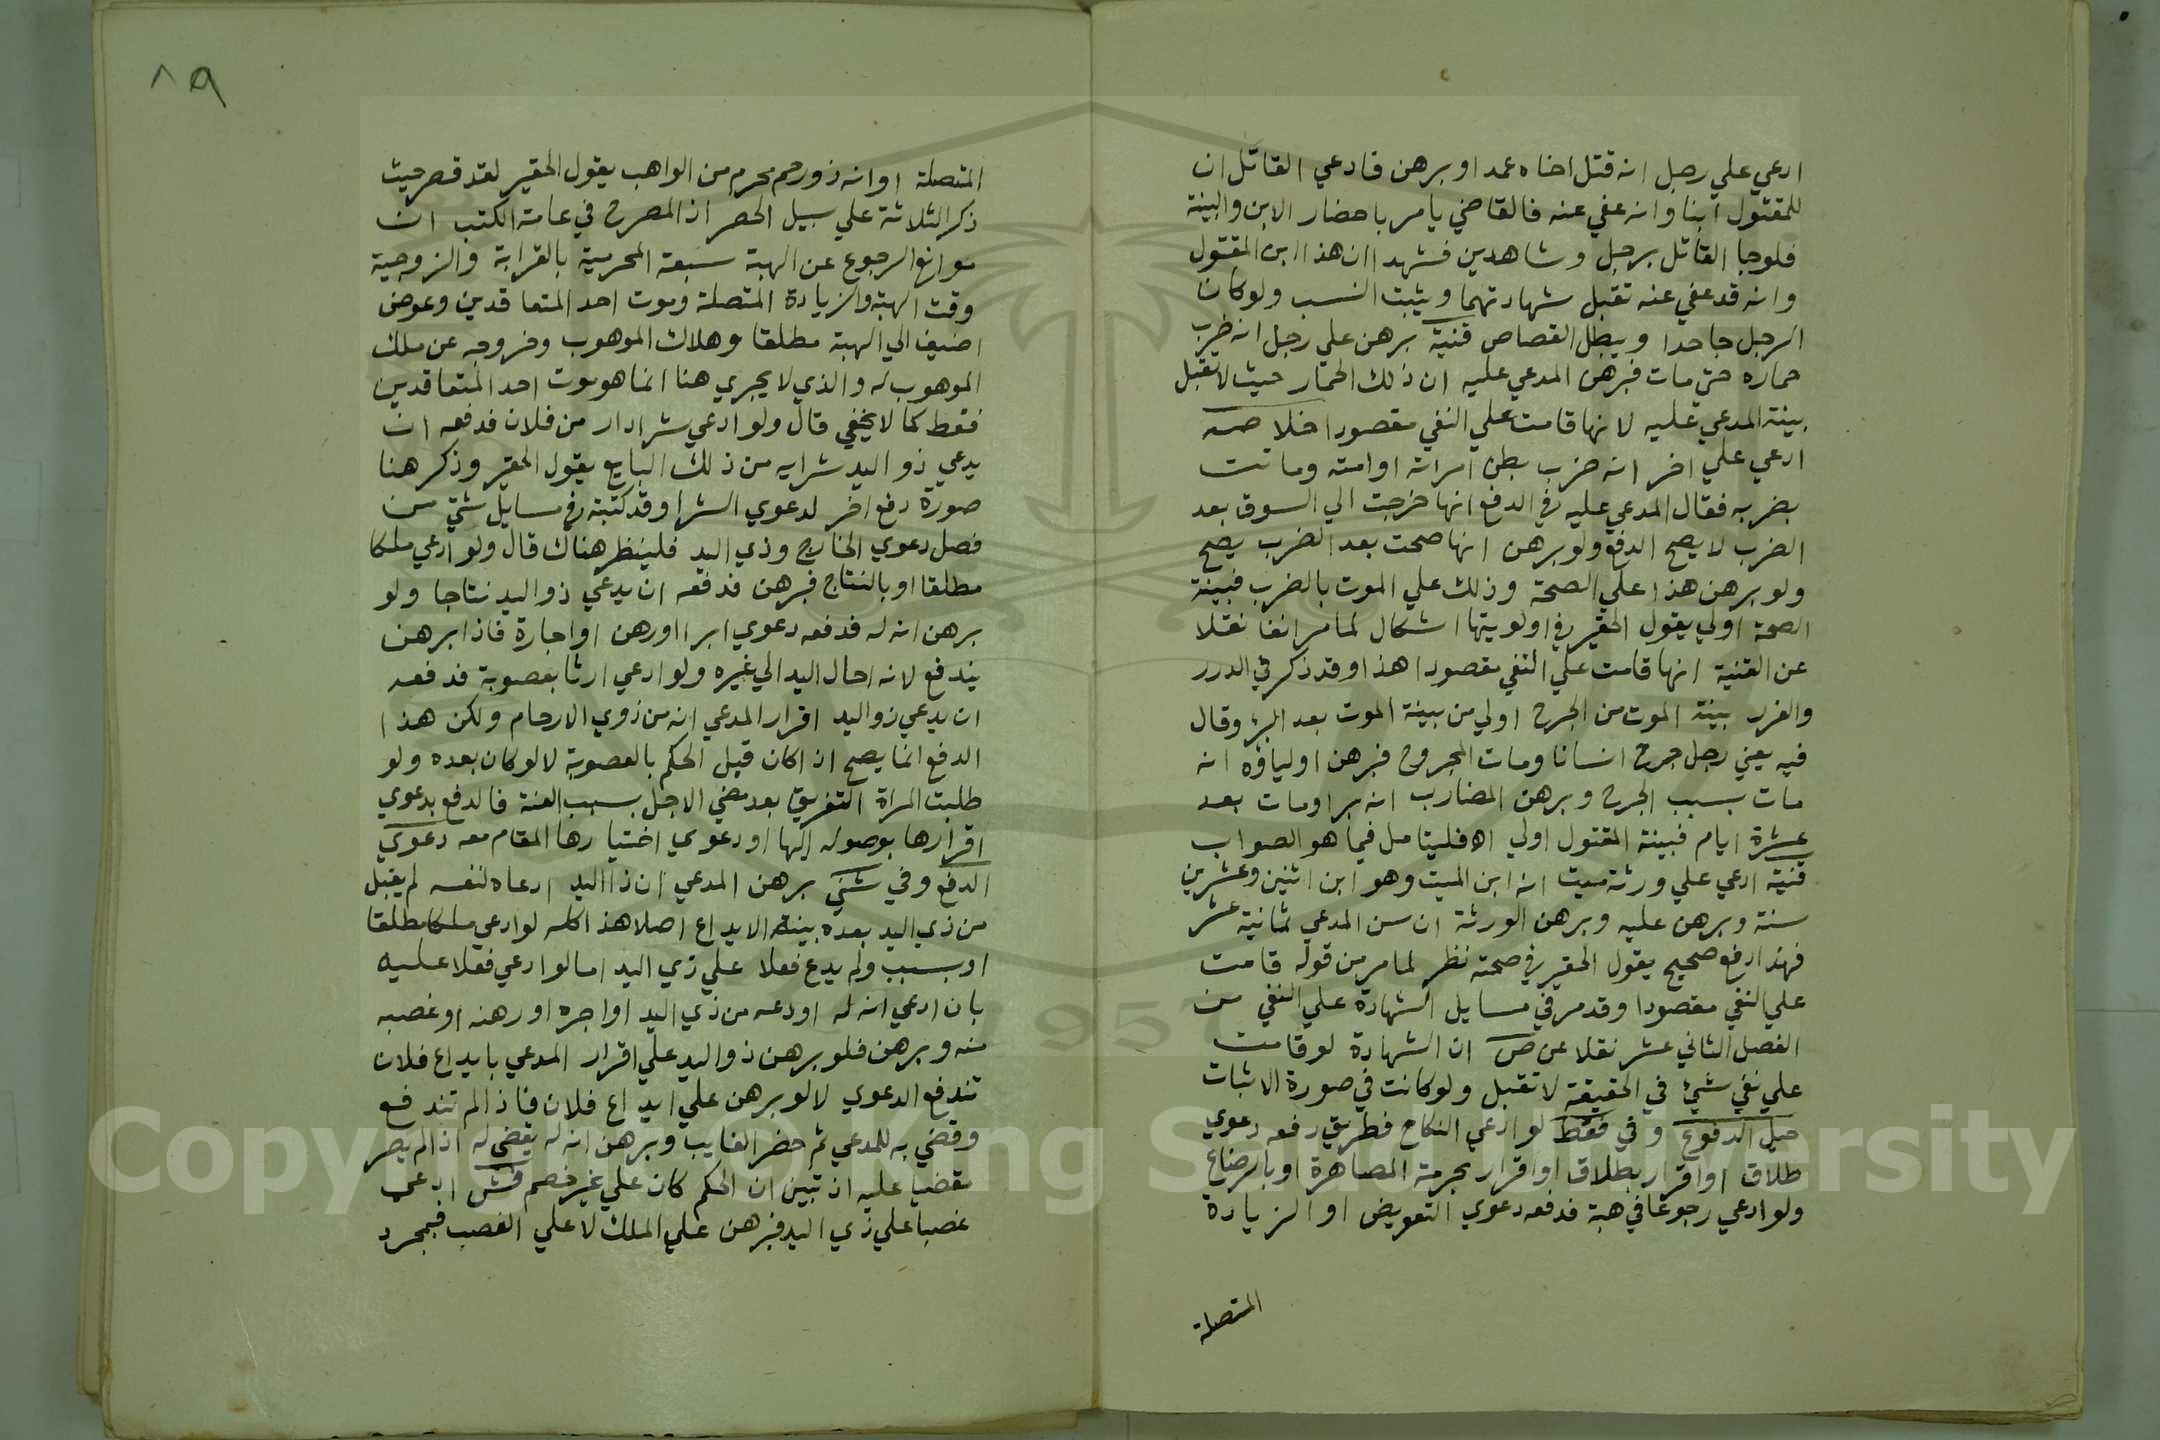 ادعي علي رجل انه قتل اخاه عمدا وبرهن فادعي القاتل ان
للمقتول ابنا وانه عفي عنه فالقاضي يامر باحضار الابن والبينة
فلوجا القاتل برجل وشاهدين فشهدا ان هذا ابن المقتول
وانه قد عفي عنه تقبل شهادتهما ويثبت النسب ولوكان
الرجل جاحدا ويبطل القصاص قنية برهن علي رجل انه ضرب
حماره حتي مات فبرهن المدعي عليه ان ذلك الحمار حيث لا تقبل
بينة المدعي عليه لانها قامت علي النفي مقصودا خلاصه
ادعي علي اخر انه ضرب بطن امراته او امته وماتت
بضربه فقال المدعي عليه في الدفع انها خرجت الي السوق بعد
الضرب لا يصح الدفع ولو برهن انها صحت بعد الضرب يصح
ولو برهن هذا علي الصحة وذلك علي الموت بالضرب فبينة
الصحة اولي يقول الحقير في اولويتها اشكال لما مر انفا نقلا
عن القنية انها قامت علي النفي مقصودا هذا وقد ذكر في الدرر
والغرر بينة الموت من الجرح اولي من بينة الموت بعد البرؤ وقال
فيه يعني رجل جرح انسانا ومات المجروح فبرهن اولياؤه انه
مات بسبب الجرح وبرهن الضارب انه برا ومات بعد
عشرة ايام فبينة المقتول اولي اه فليتامل فيما هو الصواب
قنية ادعي علي ورثة ميت انه ابن الميت وهو ابن اثنين وعشرين
سنة وبرهن عليه وبرهن الورثة ان سن المدعي ثمانية عشر
فهذا دفع صحيح يقول الحقير في صحته نظر لما مر من قوله قامت
علي النفي مقصودا وقد مر في مسايل الشهادة علي النفي من
الفصل الثاني عشر نقلا عن ص ان الشهادة لو قامت
علي نفي شيئ في الحقيقة لا تقبل ولو كانت في صورة الاثبات
حيل الدفوع وفي فقط لو ادعي النكاح فطريق دفعه دعوي
طلاق او اقرار بطلاق او اقرار بحرمة المصاهرة او بارضاع
ولو ادعي رجوعا في هبة فدفعه دعوي التعويض او الزيادة
المتصلة
٨٩
المتصلة او انه ذو رحم محرم من الواهب يقول الحقير لقد قصر حيث
ذكر الثلاثة علي سبيل الحصر اذ المصرح في عامة الكتب ان
موانع الرجوع عن الهبة سبعة المحرمية بالقرابة والزوجية
وقت الهبة والزيادة المتصلة وموت احد المتعاقدين وعوض
اضيف الي الهبة مطلقا وهلاك الموهوب وخروجه عن ملك
الموهوب له والذي لا يجري هنا انما هو موت احد المتعاقدين
فقط كما لا يخفي قال ولو ادعي شرا دار من فلان فدفعه ان
يدعي ذو اليد شرايه من ذلك البايع يقول الحقير وذكر هنا
صورة دفع اخر لدعوي الشرا وقد كتبته في مسايل شتي من
فصل دعوي الخارج وذي اليد فلينظر هناك قال ولو ادعي ملكا
مطلقا او بالنتاج فبرهن فدفعه ان يدعي ذو اليد نتاجا ولو
برهن انه له فدفعه دعوي ابرا او رهن او اجارة فاذا برهن
يندفع لانه احال اليد الي غيره ولو ادعي ارثا بعصوبة فدفعه
ان يدعي ذو اليد اقرار المدعي انه من ذوي الارحام ولكن هذا
الدفع انما يصح اذا كان قبل الحكم بالعصوبة لا لو كان بعده ولو
طلبت المراة التفريق بعد مضي الاجل بسبب العنة فالدفع بدعوي
اقرارها بوصوله اليها او دعوي اختيارها المقام معه دعوي
الدفع وفي شتي برهن المدعي ان ذا اليد ادعاه لنفسه لم يقبل
من ذي اليد بعده بينة الايداع اصلا هذا كله لو ادعي ملكا مطلقا
او بسبب ولم يدع فعلا علي ذي اليد اما لو ادعي فعلا عليه
بان ادعي انه له اودعه من ذي اليد او اجره او رهنه او غصبه
منه وبرهن فلو برهن ذو اليد علي اقرار المدعي بايداع فلان
تندفع الدعوي لا لو برهن علي ايداع فلان فاذا لم تندفع
وقضي به للمدعي ثم حضر الغايب وبرهن انه له يقضي له اذ لم يصر
مقضيا عليه اذ تبين ان الحكم كان علي غير خصم فش ادعي
غصبا علي ذي اليد فبرهن علي الملك لا علي الغصب فبمجرد
Copyright © King Saud University
1957